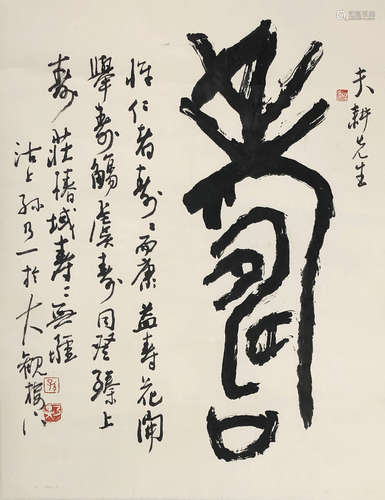 夫耕先生
壽
惟仁者壽壽而康益壽花開
舉壽觴虔壽同登臻上
壽莊椿域壽壽無疆
沽上孫乃一於大觀樓